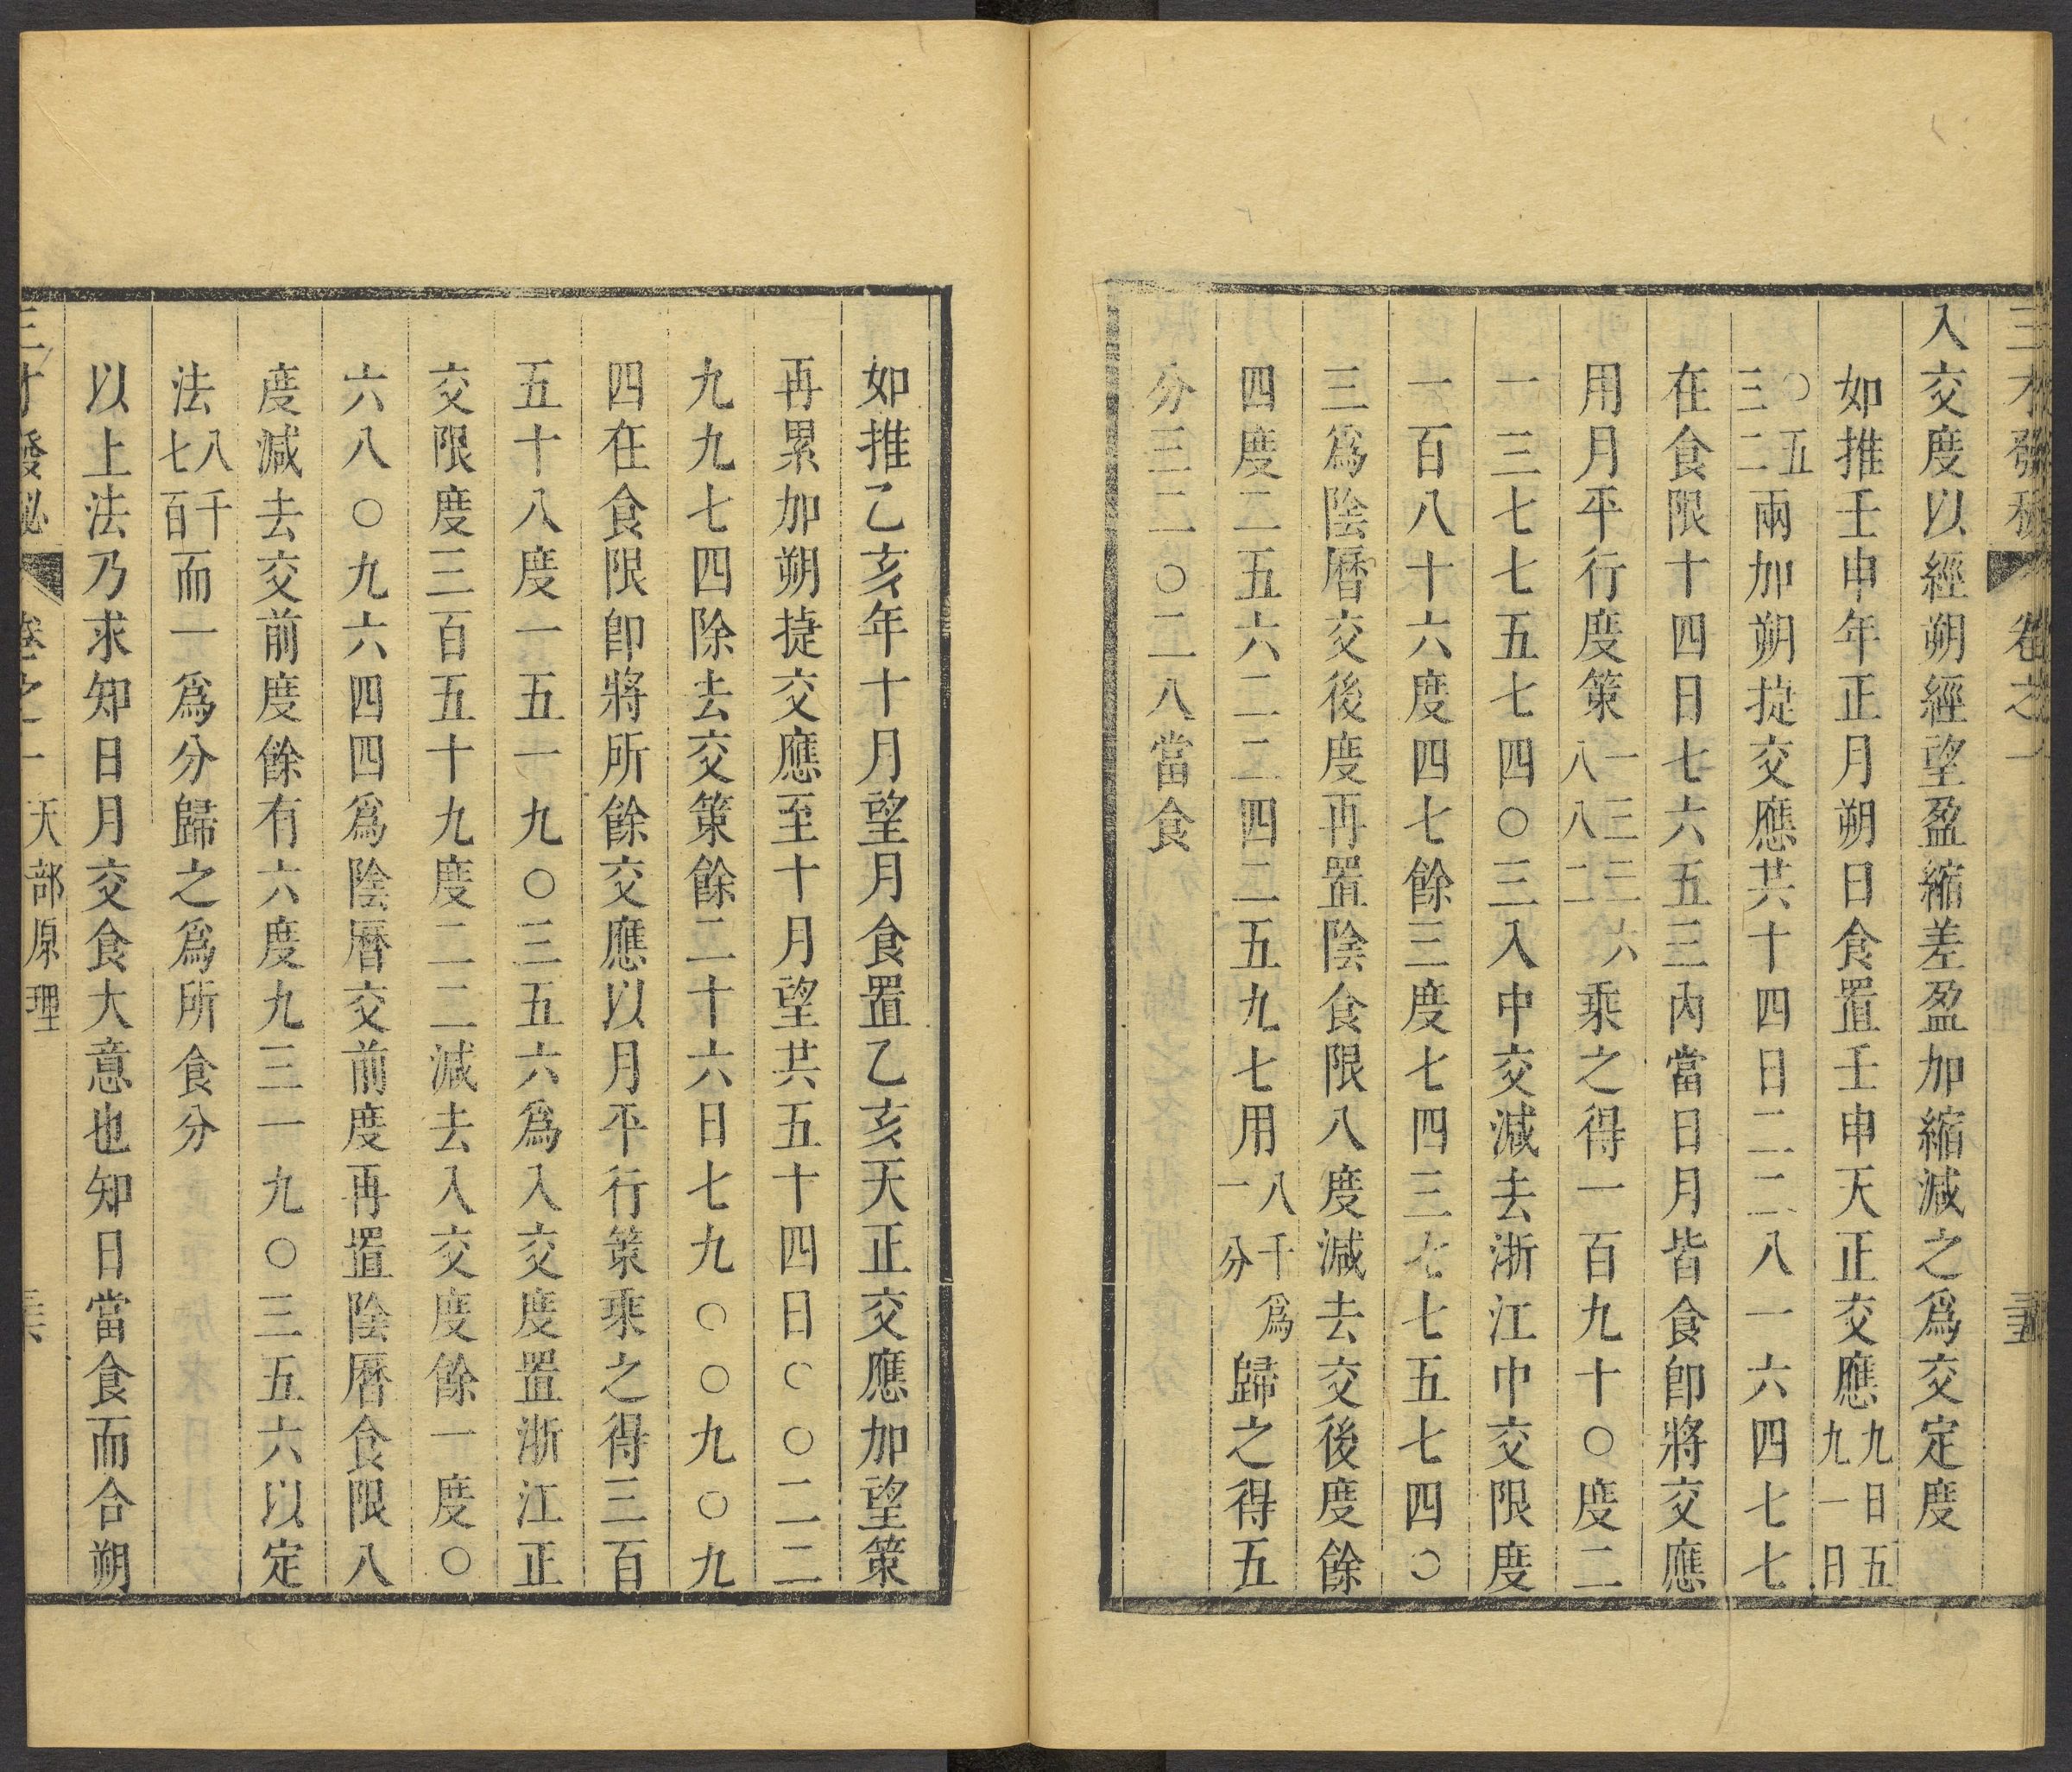 三才發秘 卷之一
入交度以經朔經望盈縮差盈加縮減之爲交定度
如推壬申年正月朔日食置壬申天正交應九日五九一日
〇五三二兩加朔㨗交應共十四日二二八一六四七七
在食限十四日七六五三內當日月皆食卽將交應
用月平行度策一三三六八八二乘之得一百九十〇度二
一三七七五七四〇三入中交減去浙江中交限度
一百八十六度四七餘三度七四三七七五七四〇
三爲陰曆交後度再置陰食限八度減去交後度餘
四度二五六二二四二五九七用八千爲一分歸之得五
分三二〇二八當食
如推乙亥年十月望月食置乙亥天正交應加望策
再累加朔㨗交應至十月望共五十四日〇〇二二
九九七四除去交策餘二十六日七九〇〇九〇九
四在食限卽將所餘交應以月平行策乘之得三百
五十八度一五一九〇三五六爲入交度置浙江正
交限度三百五十九度二二減去入交度餘一度〇
六八〇九六四四爲陰曆交前度再置陰曆食限八
度減去交前度餘有六度九三一九〇三五六以定
法八千七百而一爲分歸之爲所食分
以上法乃求知日月交食大意也知日當食而合朔
三才發秘 卷之一 天部原理